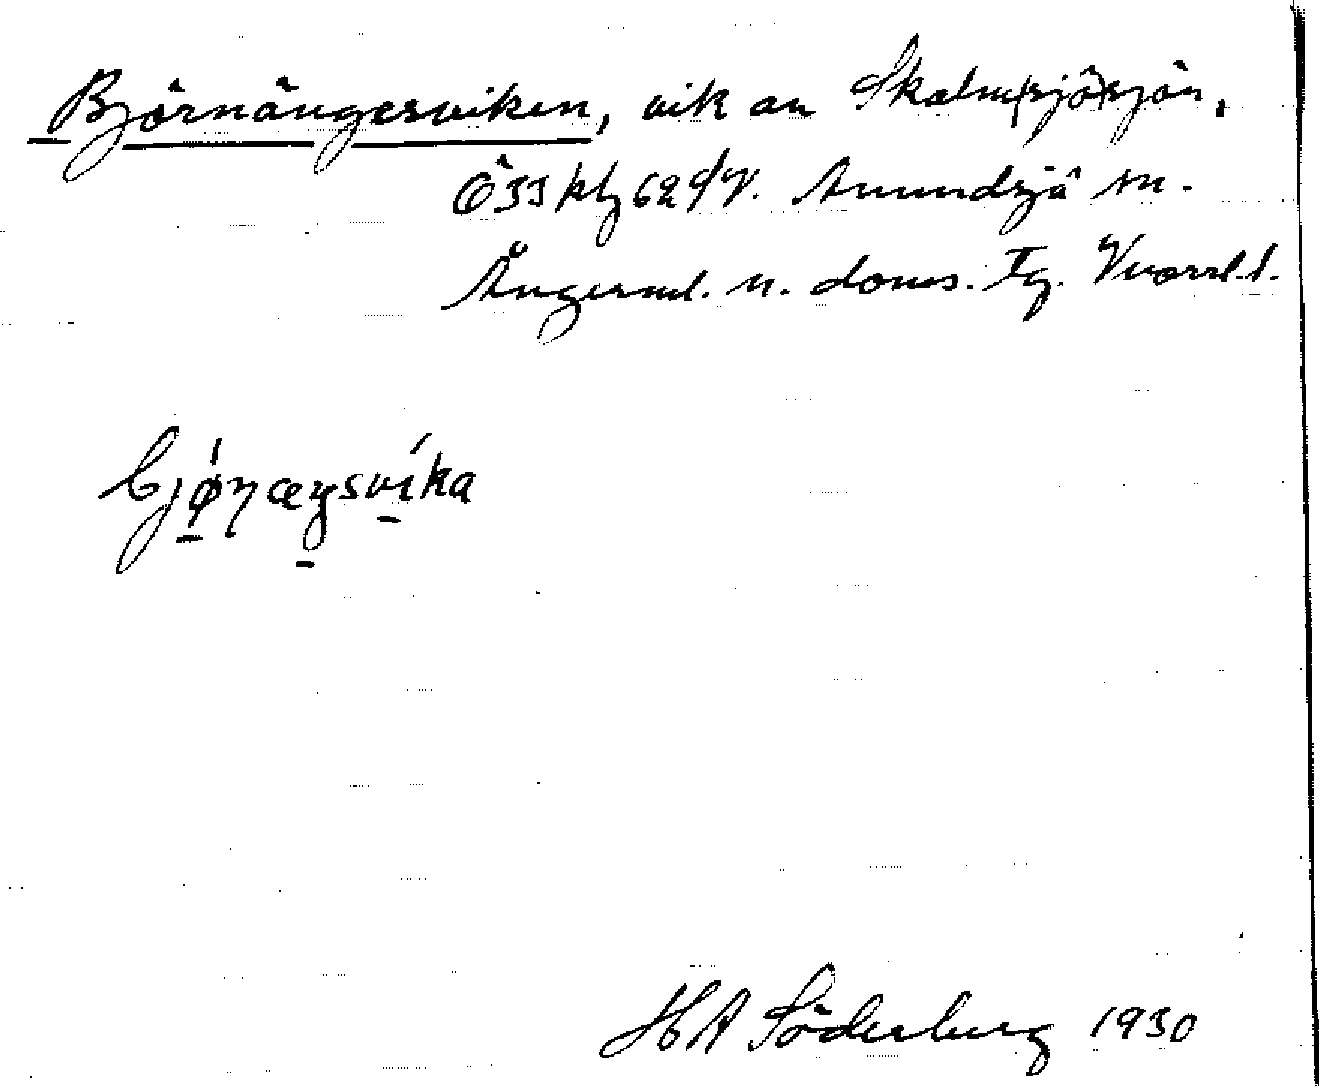 Björnängesviken, vik av Skalm(sjö)sjön,
Ö33 hz 62 d V. Anundsjö sn.
Ångerml. n. doms. Tg. Vnorrl. l.
bjøṇæŋsvika
HA Söderberg 1930